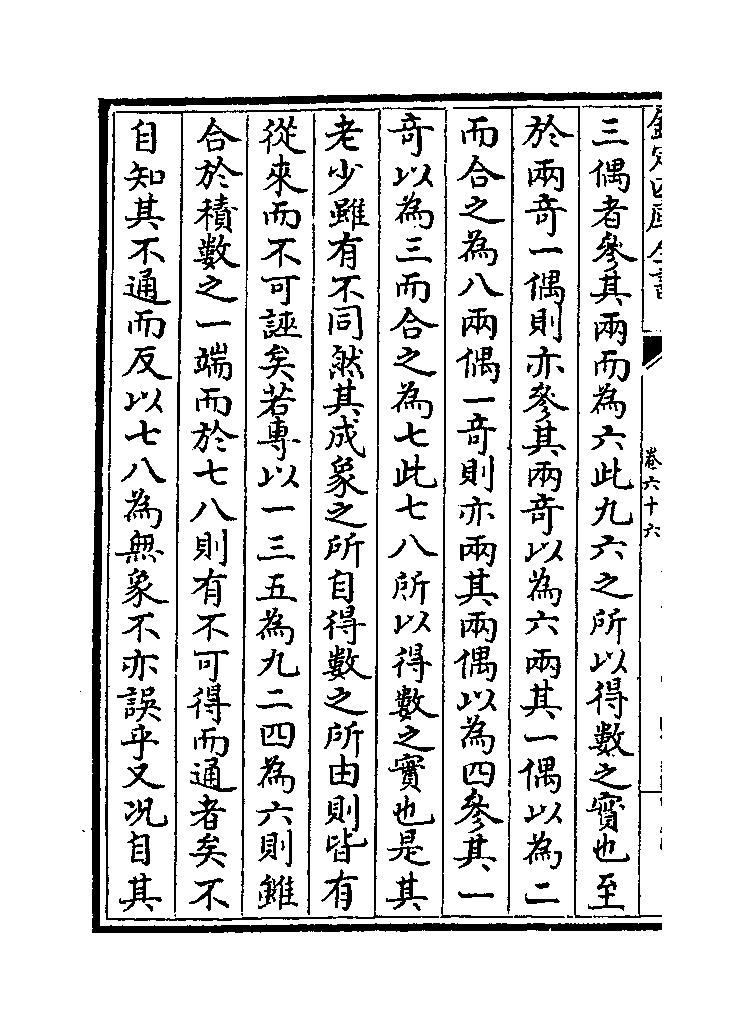 欽定四庫全書
卷六十六
三偶者參其兩而為六此九六之所以得數之實也至
於兩竒一偶則亦參其兩竒以為六兩其一偶以為二
而合之為八兩偶一竒則亦兩其兩偶以為四參其一
竒以為三而合之為七此七八所以得數之實也是其
老少雖有不同然其成象之所自得數之所由則皆有
從來而不可誣矣若專以一三五為九二四為六則雖
合於積數之一端而於七八則有不可得而通者矣不
自知其不通而反以七八為無象不亦誤乎又况自其